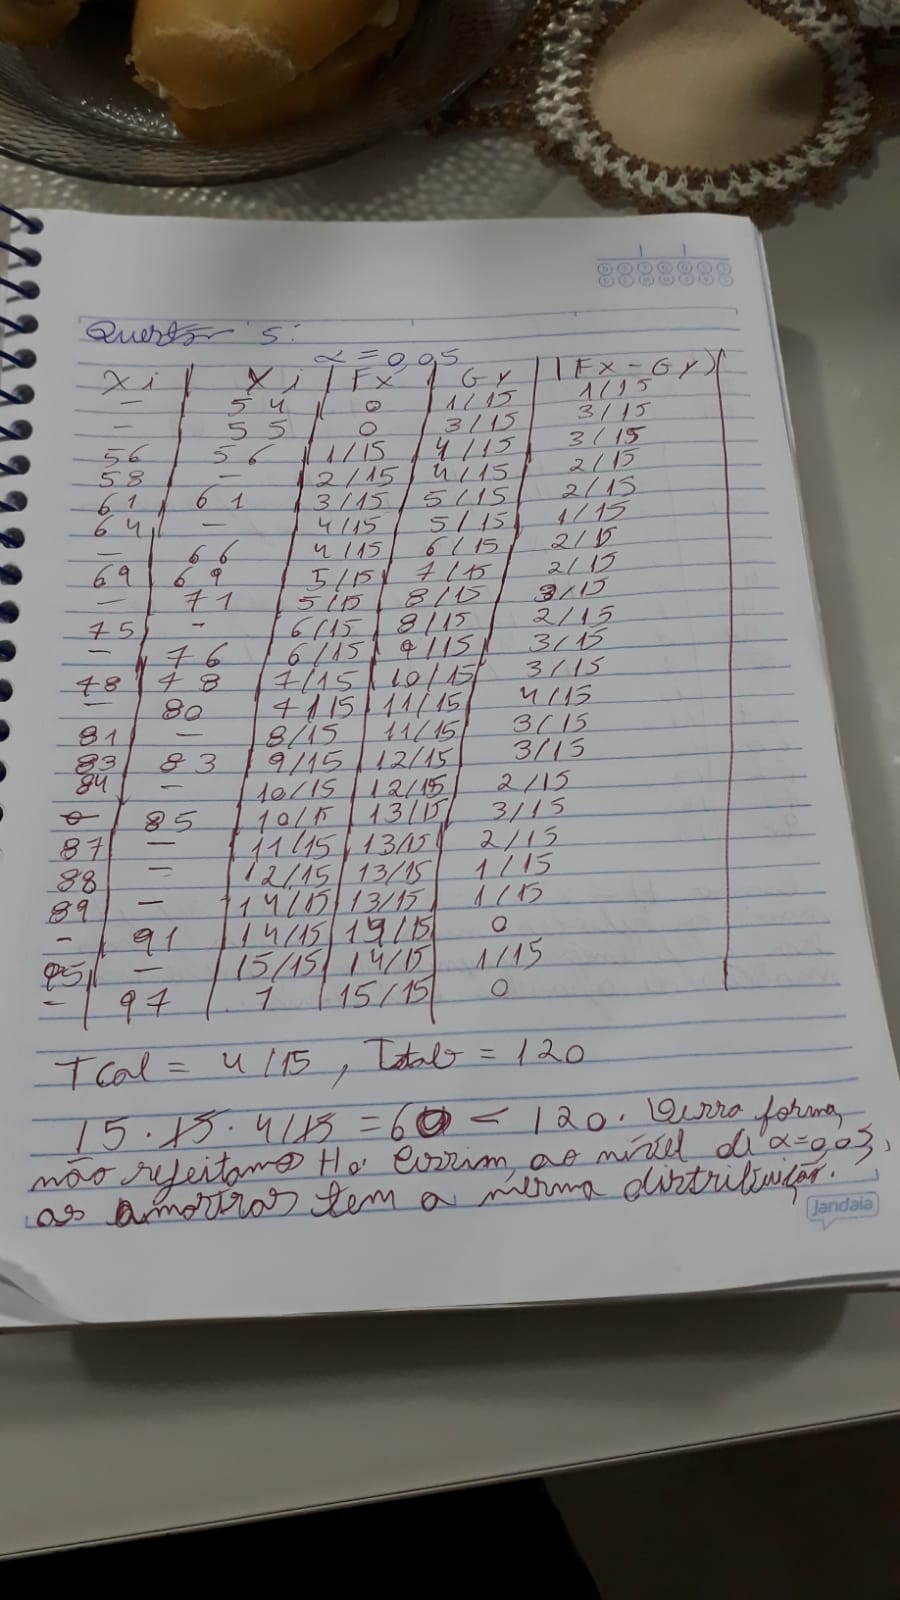 Questão 5:
α = 0,05
Xi | Yi | Fx | Gy | |Fx - Gy|
- | 54 | 0 | 1/15 | 1/15
- | 55 | 0 | 3/15 | 3/15
56 | 56 | 1/15 | 4/15 | 3/15
58 | - | 2/15 | 4/15 | 2/15
61 | 61 | 3/15 | 5/15 | 2/15
64 | - | 4/15 | 5/15 | 1/15
- | 66 | 4/15 | 6/15 | 2/15
69 | 69 | 5/15 | 7/15 | 2/15
- | 71 | 5/15 | 8/15 | 3/15
75 | - | 6/15 | 8/15 | 2/15
- | 76 | 6/15 | 9/15 | 3/15
78 | 78 | 7/15 | 10/15 | 3/15
- | 80 | 7/15 | 11/15 | 4/15
81 | - | 8/15 | 11/15 | 3/15
83 | 83 | 9/15 | 12/15 | 3/15
84 | - | 10/15 | 12/15 | 2/15
- | 85 | 10/15 | 13/15 | 3/15
87 | - | 11/15 | 13/15 | 2/15
88 | - | 12/15 | 13/15 | 1/15
89 | - | 14/15 | 13/15 | 1/15
- | 91 | 14/15 | 14/15 | 0
95 | - | 15/15 | 14/15 | 1/15
- | 97 | 1 | 15/15 | 0
Tcal = 4/15 , Ttab = 120
15 . 15 . 4/15 = 60 < 120. Dessa forma,
não rejeitamos H0. Assim, ao nível de α=0,05,
as amostras tem a mesma distribuição.
Jandaia